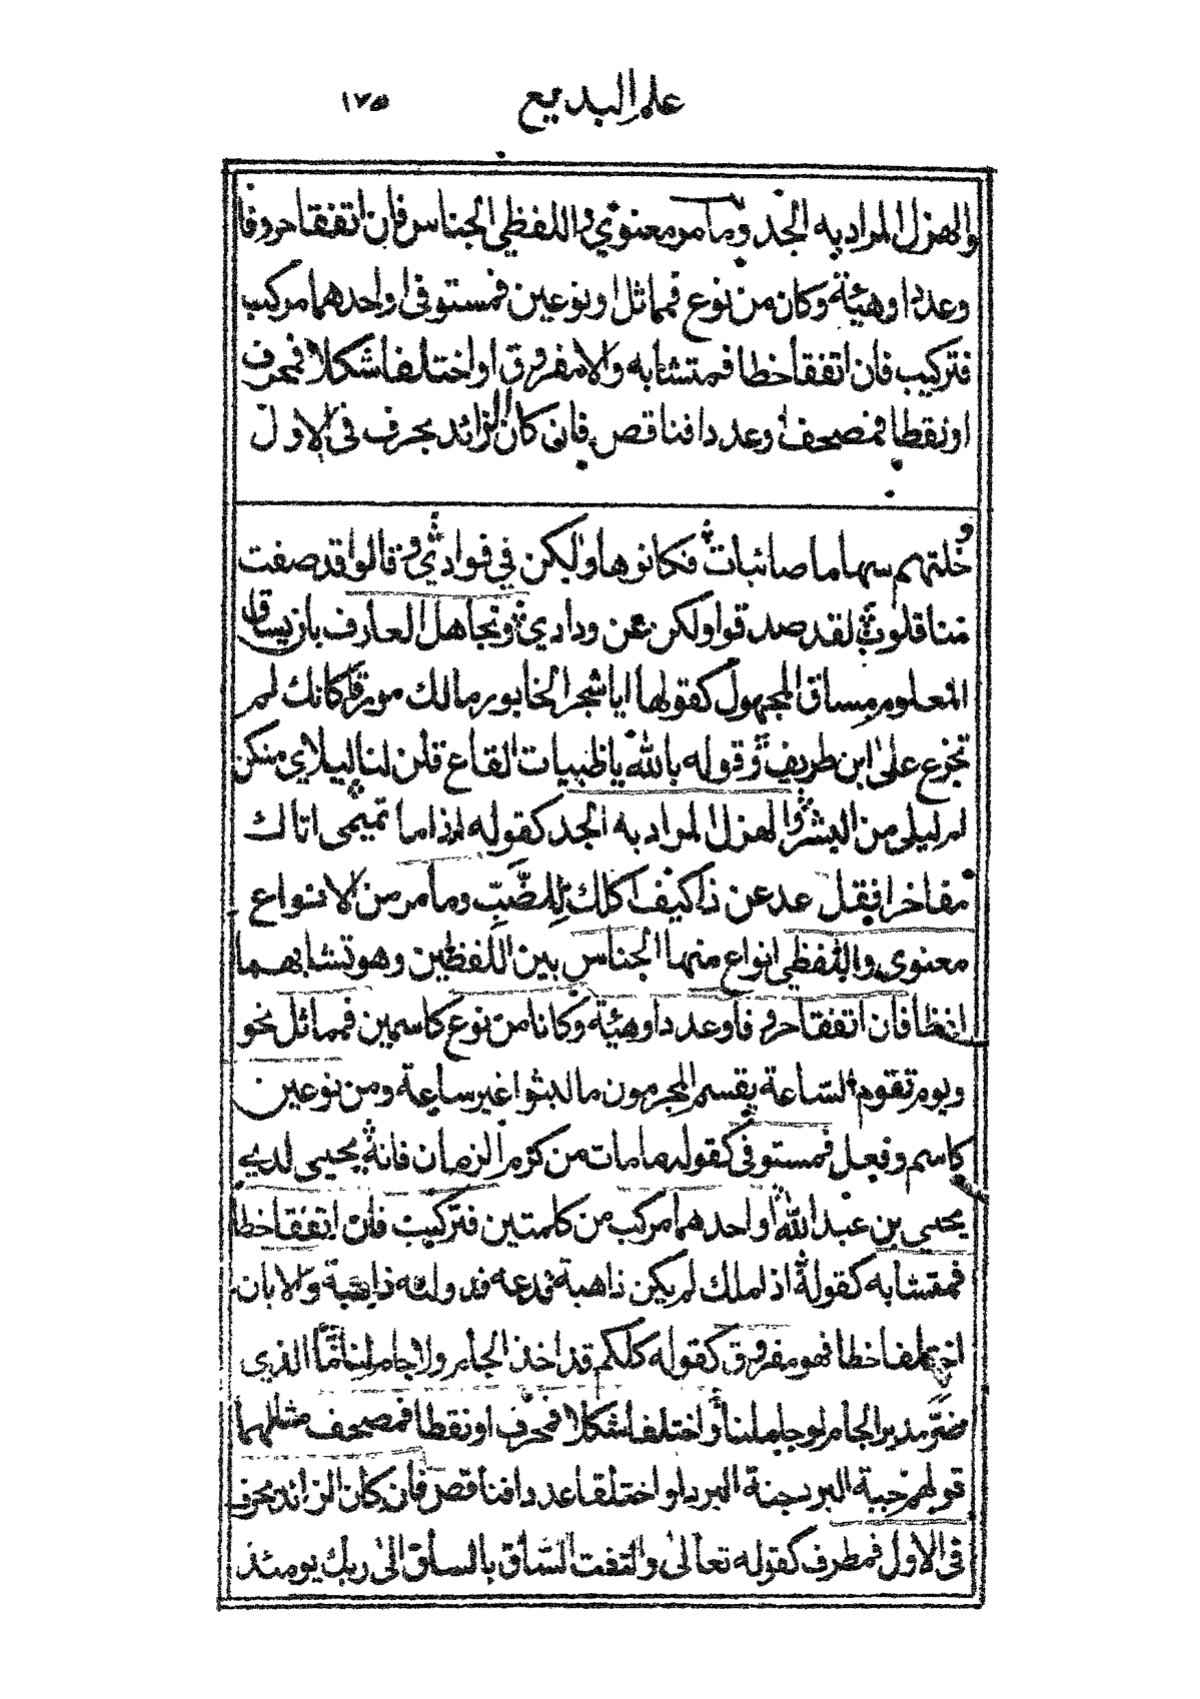 علم البديع ١٧٥
والهزل المراد به الجد وما مر معنوي واللفظي الجناس فان اتفقا حروفا
وعددا وهيئة وكان من نوع فمماثل او نوعين فمستوفى او احدهما مركب
فتركيب فان اتفقا خطا فمتشابه والا مفروق او اختلفا شكلا فمحرف
او نقطا فمصحف او عددا فناقص فان كان الزائد بحرف في الاول
وخلتهم سهاما صائبات فكانوها ولكن في فوادي وقالوا قد صفت
منا قلوب لقد صدقوا ولكن عن ودادي وتجاهل العارف بان يساق
المعلوم مساق المجهول كقولها ايا شجر الخابور مالك مورقا كانك لم
تجزع على ابن طريف وقوله بالله يا ظبيات القاع قلن لنا ليلاي منكن
ام ليلى من البشر والهزل المراد به الجد كقوله اذا ما تميمي اتاك
مفاخرا فقل عد عن ذا كيف اكلك للضب وما مر من الانواع
معنوي واللفظي انواع منها الجناس بين اللفظين وهو تشابههما
لفظا فان اتفقا حروفا وعددا وهيئة وكانا من نوع كاسمين فمماثل نحو
ويوم تقوم الساعة يقسم المجرمون ما لبثوا غير ساعة ومن نوعين
كاسم وفعل فمستوفى كقوله ما مات من كرم الزمان فانه يحيى لدي
يحيى بن عبد الله او احدهما مركب من كلمتين فتركيب فان اتفقا خطا
فمتشابه كقوله اذا ملك لم يكن ذاهبة فدعه فدولته ذاهبة والا بان
اختلفا خطا فهو مفروق كقوله كلكم قد اخذ الجام ولا جام لنا ما الذي
ضر مدير الجام لو جاملنا او اختلفا شكلا فمحرف او نقطا فمصحف مثالهما
قولهم جبة البرد جنة البرد او اختلفا عددا فناقص فان كان الزائد بحرف
في الاول فمطرف كقوله تعالى والتفت الساق بالساق الى ربك يومئذ